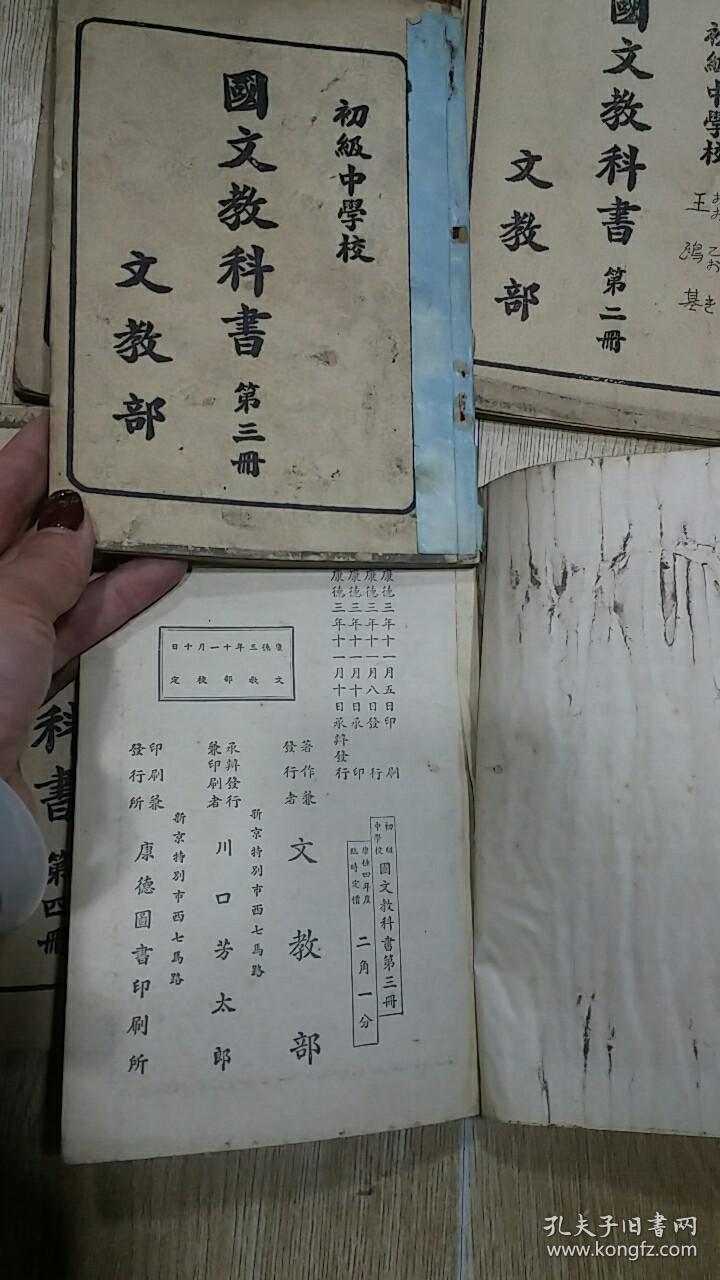 初級中學校
國文教科書 第三冊
文教部
初級中學校
國文教科書 第二冊
文教部
王
基
科書 第四冊
康德三年十一月五日印刷
康德三年十一月八日發行
康德三年十一月十日承印
康德三年十一月十日承辦發行
康德三年十一月十日
文教部檢定
初級中學校 國文教科書第三冊
康德四年度臨時定價 二角一分
著作兼發行者 文教部
新京特別市西七馬路
承辦發行兼印刷者 川口芳太郎
新京特別市西七馬路
印刷兼發行所 康德圖書印刷所
孔夫子旧书网
www.kongfz.com